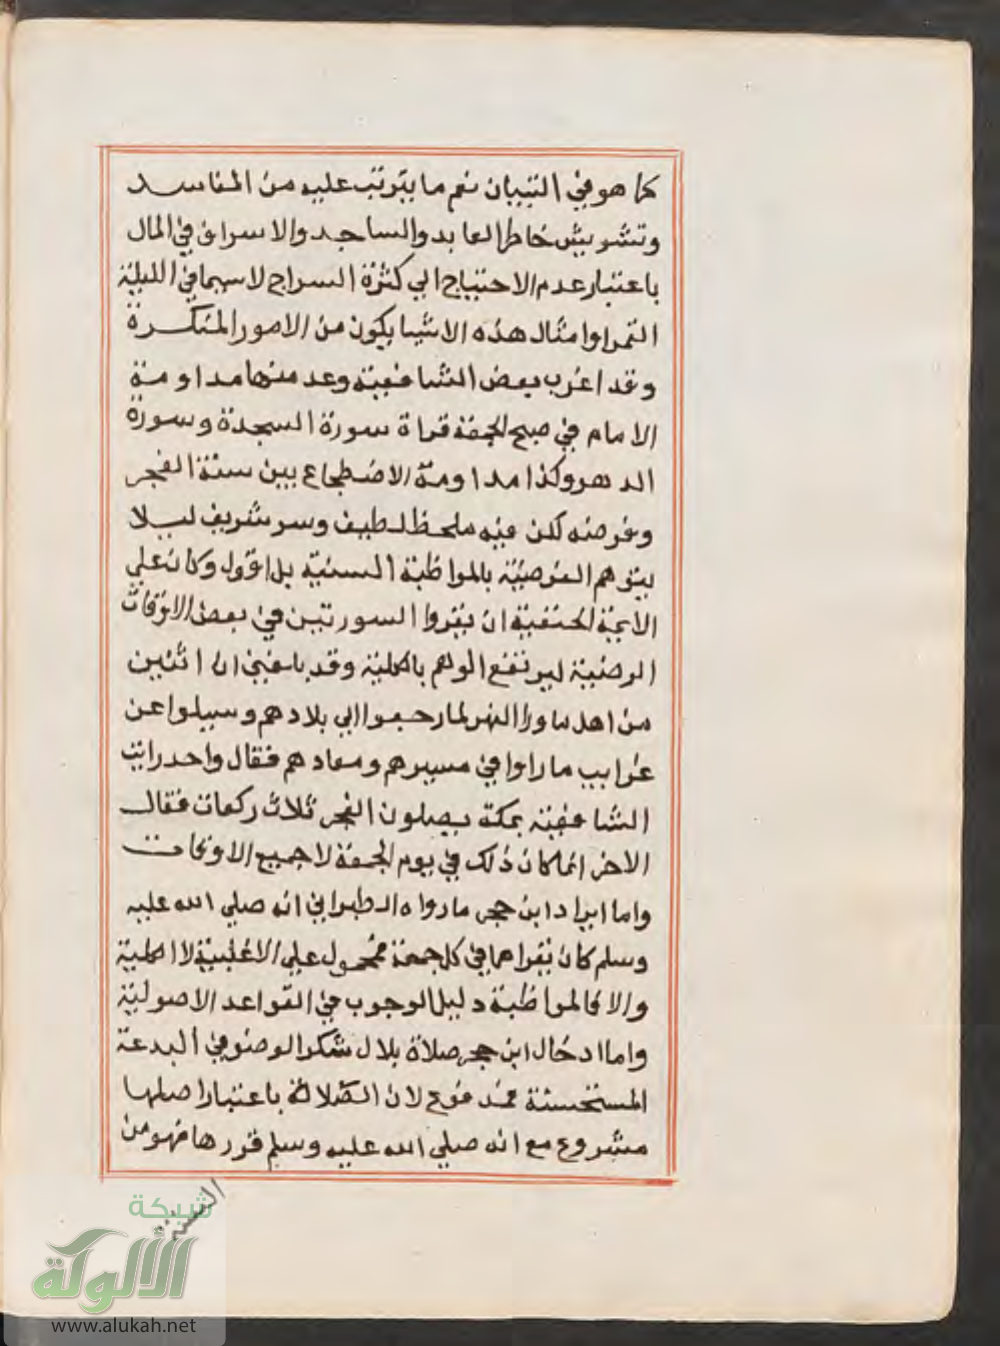 كما هو في التبيان نعم ما يترتب عليه من المفاسد
وتشويش خاطر العابد والساجد والاسراف في المال
باعتبار عدم الاحتياج الي كثرة السراج لاسيما في الليلة
القمرا وامثال هذه الاشيا يكون من الامور المنكرة
وقد اغرب بعض الشافعية وعد منها مداومة
الامام في صبح الجمعة قراة سورة السجدة وسورة
الدهر وكذا مداومة الاضطجاع بين سنة الفجر
وفرضه لكن فيه ملحظ لطيف وسر شريف ليلا
يتوهم الفرضية بالمواظبة السنية بل اقول وكان علي
الايمة الحنفية ان يقروا السورتين في بعض الاوقات
الرضية ليرتفع الوهم بالكلية وقد بلغني ان اثنين
من اهل ماورا النهر لما رجعوا الي بلادهم وسيلوا عن
غرايب ما راوا في مسيرهم ومعادهم فقال واحد رايت
الشافعية بمكة يصلون الفجر ثلاث ركعات فقال
الاخر انما كان ذلك في يوم الجمعة لا جميع الاوقات
واما ايراد ابن حجر ما رواه الطبراني انه صلي الله عليه
وسلم كان يقراهما في كل جمعة فمحمول علي الاغلبية لا الكلية
والا فالمواظبة دليل الوجوب في القواعد الاصولية
واما ادخال ابن حجر صلاة بلال شكر الوضو في البدعة
المستحسنة فمدفوع لان الصلاة باعتبار اصلها
مشروع مع انه صلي الله عليه وسلم قررها فهو من
السنة
شبكة
الألوكة
www.alukah.net